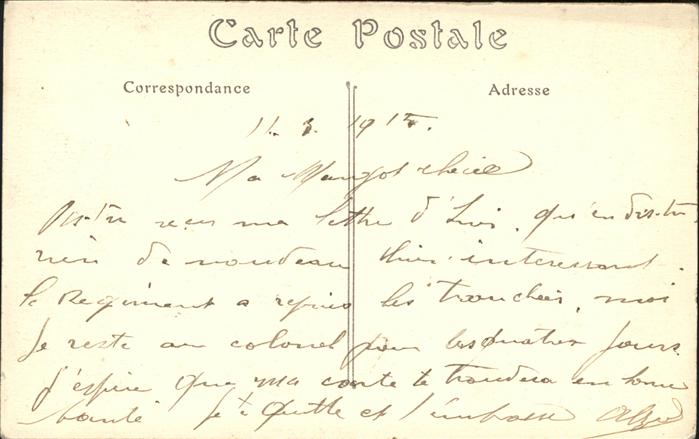 Carte Postale
Correspondance
Adresse
11. 3. 1915.
Ma Margot chérie
reçu ma lettre d'hier. qu'en dis-tu
rien de nouveau bien interessant.
le Regiment a repris les tranchées, moi
je reste au colonel pour les quatre jours.
j'espère que ma carte te trouvera en bonne
santé je te quitte et t'embrasse